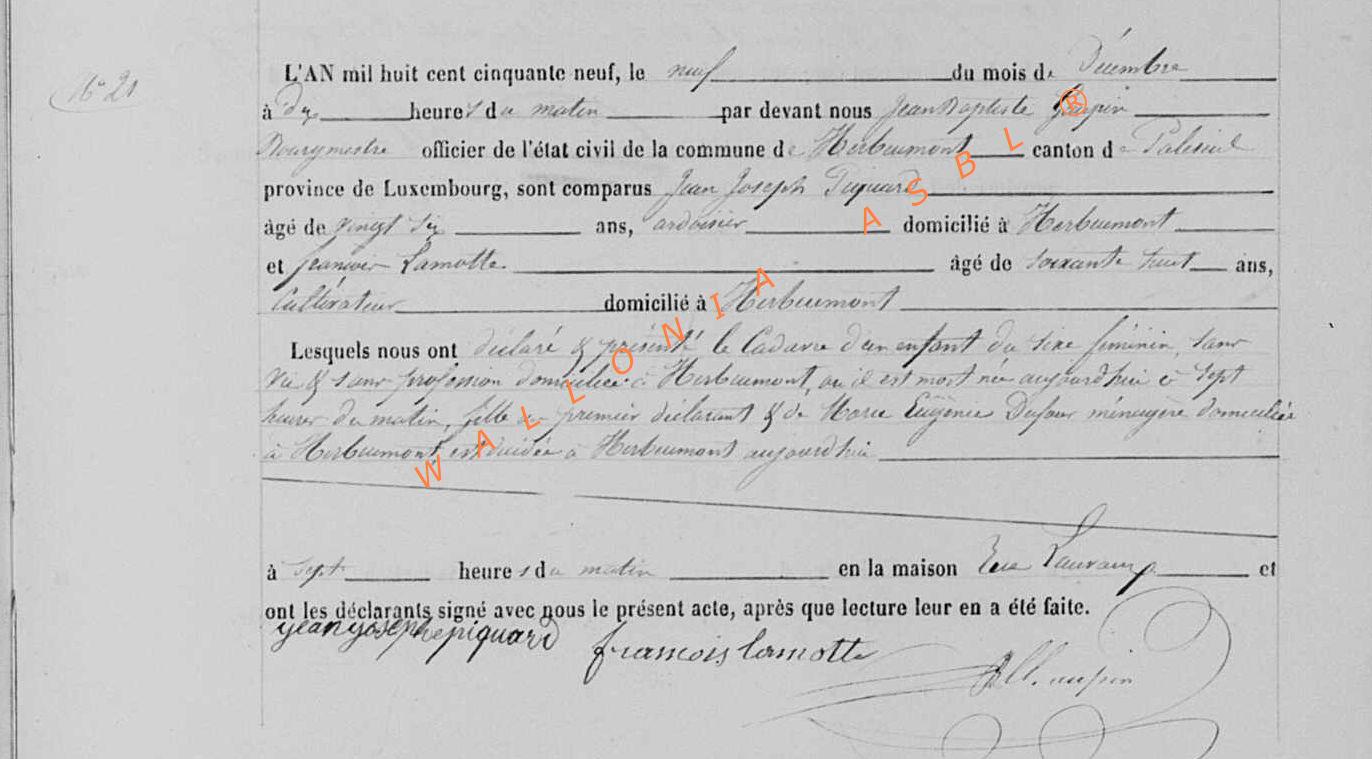 N° 21
L'AN mil huit cent cinquante neuf, le neuf du mois de Décembre
à dix heures du matin par devant nous Jean Baptiste
Bourgmestre officier de l'état civil de la commune de Herbeumont canton de Paliseul
province de Luxembourg, sont comparus Jean Joseph Piquard
âgé de vingt six ans, ardoisier domicilié à Herbeumont
et François Lamotte âgé de soixante huit ans,
Cultivateur domicilié à Herbeumont
Lesquels nous ont déclaré & présenté le Cadavre d'un enfant du sexe féminin, sans
vie & sans profession domiciliée à Herbeumont, où il est mort née aujourd'hui à sept
heures du matin, fille du premier déclarant & de Marie Eugénie Dufour ménagère domiciliée
à Herbeumont, est décidée à Herbeumont aujourd'hui
à sept heures du matin en la maison Rue et
ont les déclarants signé avec nous le présent acte, après que lecture leur en a été faite.
jean joseph piquard francois lamotte
WALLONIA ASBL ®